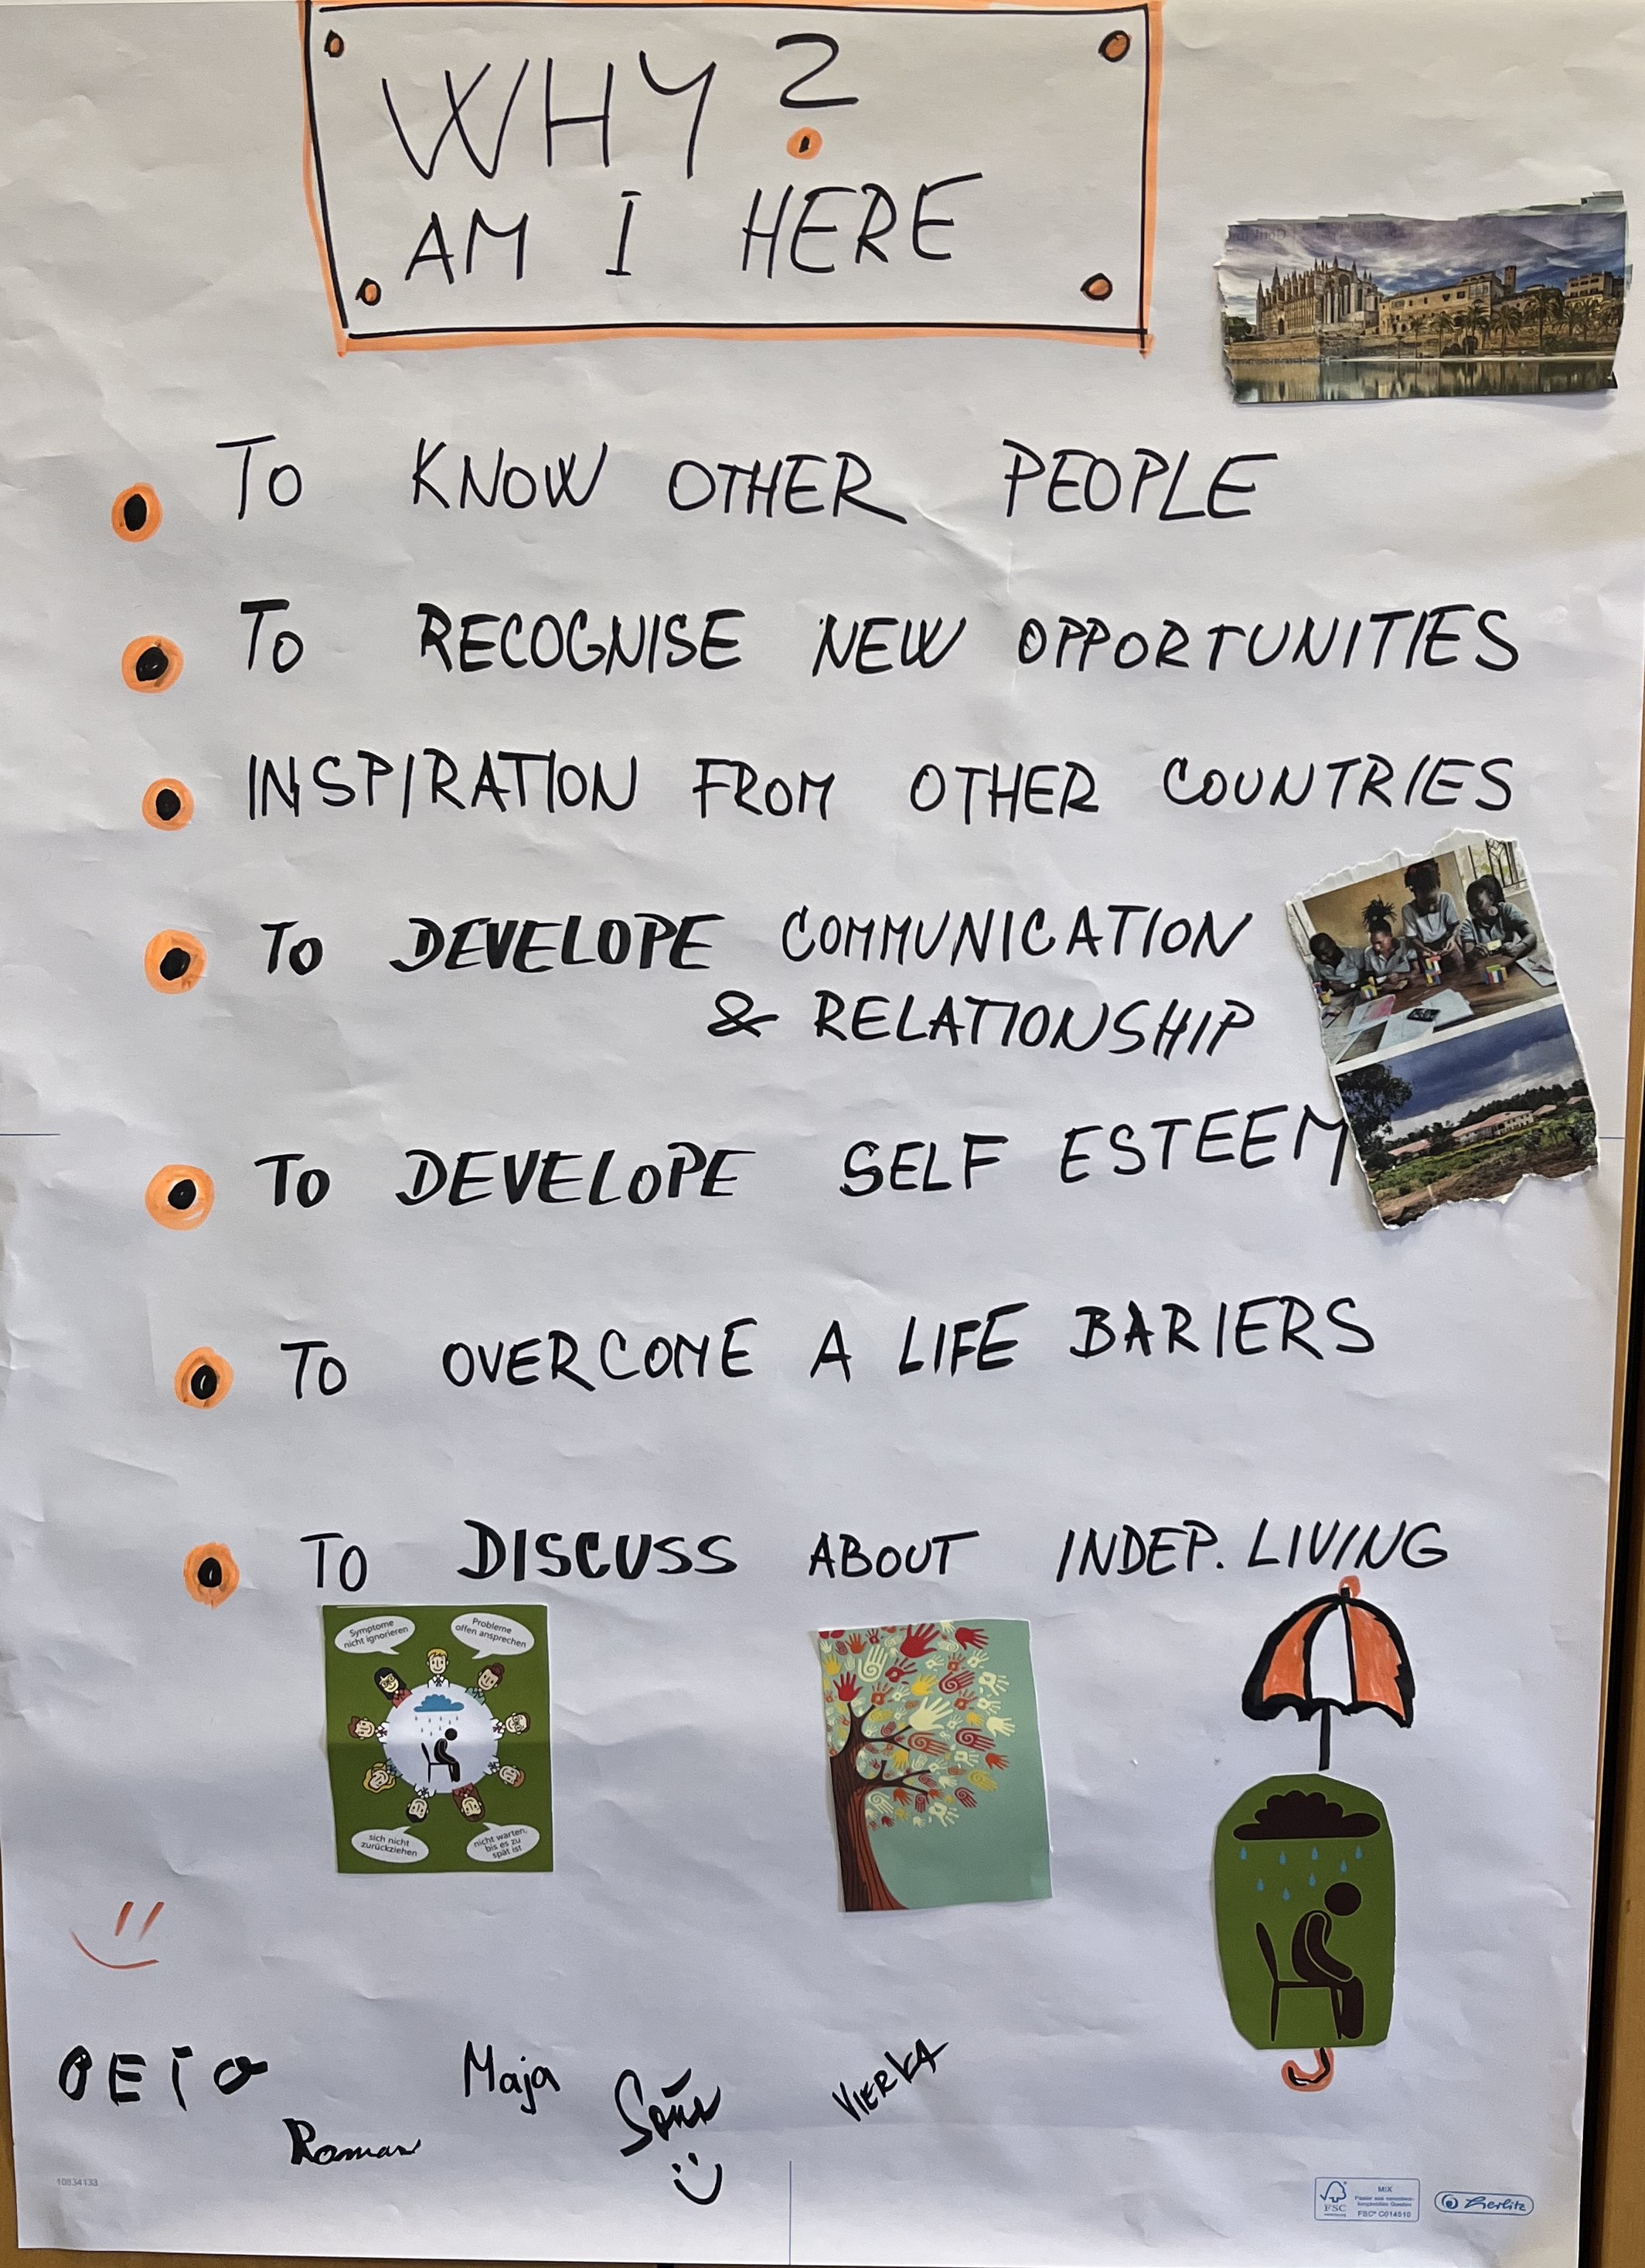 WHY?
AM I HERE
TO KNOW OTHER PEOPLE
TO RECOGNISE NEW OPPORTUNITIES
INSPIRATION FROM OTHER COUNTRIES
TO DEVELOPE COMMUNICATION
& RELATIONSHIP
TO DEVELOPE SELF ESTEEM
TO OVERCOME A LIFE BARIERS
TO DISCUSS ABOUT INDEP. LIVING
Symptome
nicht ignorieren
Probleme
offen ansprechen
sich nicht
zurückziehen
nicht warten,
bis es zu
spät ist
Maja
VIERKA
Roman
Soňa
10834133
FSC
MIX
FSC® C014510
Herlitz